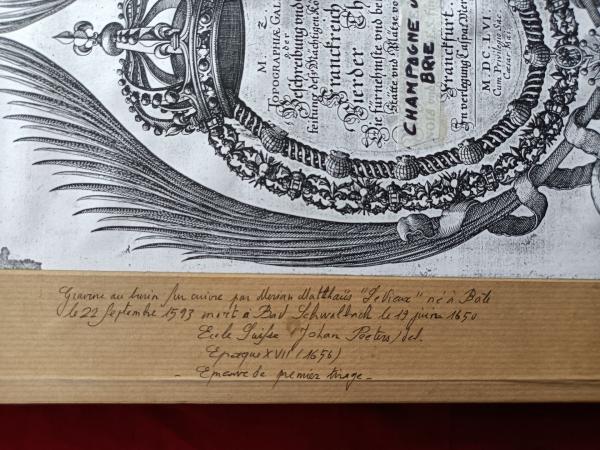 M. Z.
TOPOGRAPHIÆ GAL
oder
Beschreibung vnd
Franckreich
Vierder Th
Die fürnehmste vnd be
Stätte vnd Plätze
CHAMPAGNE
BRIE
Franckfurt.
In verlegung Caspar Mer
M.DC.LVI
Cum Privilegio Sac
Cæsar. Mai.
Gravure au burin sur cuivre par Merian Matthaüs "Le Vieux" né à Bâle
le 22 Septembre 1593 mort à Bad Schwalbach le 19 juin 1650
Ecole Suisse (Johan Peeters) del.
Epoque XVII (1656)
- Epreuve de premier tirage -